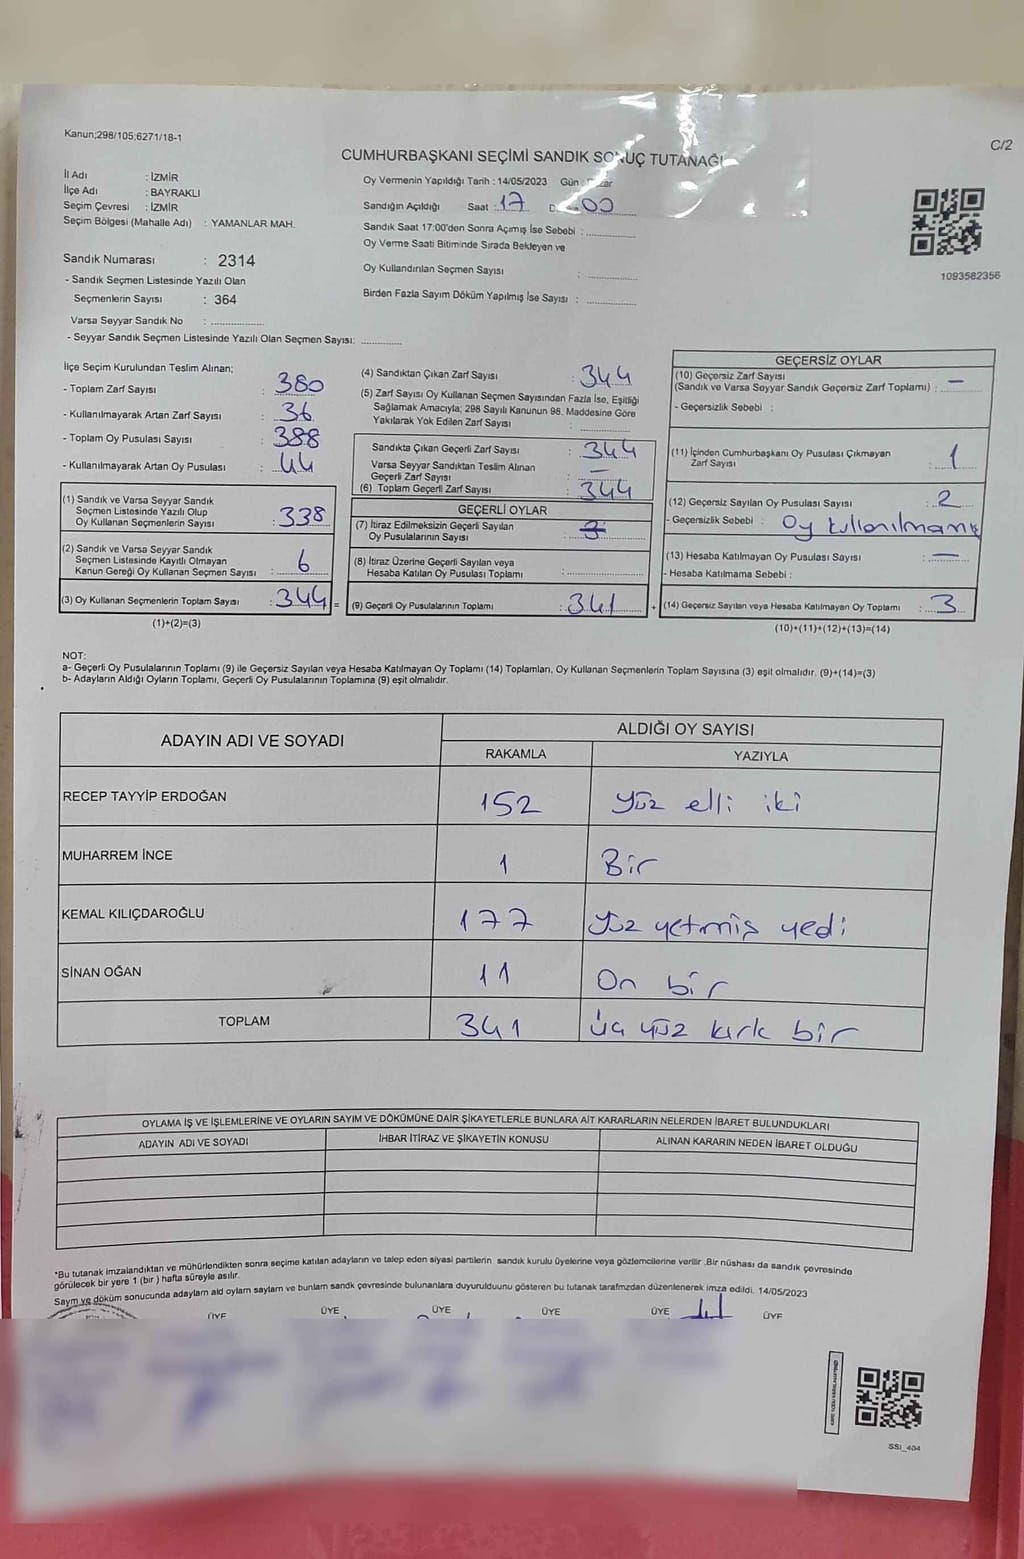 Kanun;298/105;6271/18-1
C/2
CUMHURBAŞKANI SEÇİMİ SANDIK SONUÇ TUTANAĞI
İl Adı : İZMİR
İlçe Adı : BAYRAKLI
Seçim Çevresi : İZMİR
Seçim Bölgesi (Mahalle Adı) : YAMANLAR MAH.
Sandık Numarası : 2314
- Sandık Seçmen Listesinde Yazılı Olan
Seçmenlerin Sayısı : 364
Varsa Seyyar Sandık No : ................
- Seyyar Sandık Seçmen Listesinde Yazılı Olan Seçmen Sayısı: ............
Oy Vermenin Yapıldığı Tarih : 14/05/2023 Gün :
Sandığın Açıldığı Saat : 17 00
Sandık Saat 17:00'den Sonra Açımış İse Sebebi : ..............
Oy Verme Saati Bitiminde Sırada Bekleyen ve
Oy Kullandırılan Seçmen Sayısı : ..............
Birden Fazla Sayım Döküm Yapılmış İse Sayısı : ..............
1093582356
İlçe Seçim Kurulundan Teslim Alınan;
- Toplam Zarf Sayısı : 380
- Kullanılmayarak Artan Zarf Sayısı : 36
- Toplam Oy Pusulası Sayısı : 388
- Kullanılmayarak Artan Oy Pusulası : 44
(1) Sandık ve Varsa Seyyar Sandık
Seçmen Listesinde Yazılı Olup
Oy Kullanan Seçmenlerin Sayısı : 338
(2) Sandık ve Varsa Seyyar Sandık
Seçmen Listesinde Kayıtlı Olmayan
Kanun Gereği Oy Kullanan Seçmen Sayısı : 6
(3) Oy Kullanan Seçmenlerin Toplam Sayısı : 344 =
(1)+(2)=(3)
(4) Sandıktan Çıkan Zarf Sayısı : 344
(5) Zarf Sayısı Oy Kullanan Seçmen Sayısından Fazla İse, Eşitliği
Sağlamak Amacıyla; 298 Sayılı Kanunun 98. Maddesine Göre
Yakılarak Yok Edilen Zarf Sayısı : ..............
Sandıkta Çıkan Geçerli Zarf Sayısı : 344
Varsa Seyyar Sandıktan Teslim Alınan
Geçerli Zarf Sayısı : —
(6) Toplam Geçerli Zarf Sayısı : 344
GEÇERLİ OYLAR
(7) İtiraz Edilmeksizin Geçerli Sayılan
Oy Pusulalarının Sayısı :
(8) İtiraz Üzerine Geçerli Sayılan veya
Hesaba Katılan Oy Pusulası Toplamı : ..............
(9) Geçerli Oy Pusulalarının Toplamı : 341 +
GEÇERSİZ OYLAR
(10) Geçersiz Zarf Sayısı
(Sandık ve Varsa Seyyar Sandık Geçersiz Zarf Toplamı) : —
- Geçersizlik Sebebi :
(11) İçinden Cumhurbaşkanı Oy Pusulası Çıkmayan
Zarf Sayısı : 1
(12) Geçersiz Sayılan Oy Pusulası Sayısı : 2
- Geçersizlik Sebebi : Oy kullanılmamış
(13) Hesaba Katılmayan Oy Pusulası Sayısı : —
- Hesaba Katılmama Sebebi :
(14) Geçersiz Sayılan veya Hesaba Katılmayan Oy Toplamı : 3
(10)+(11)+(12)+(13)=(14)
NOT:
a- Geçerli Oy Pusulalarının Toplamı (9) ile Geçersiz Sayılan veya Hesaba Katılmayan Oy Toplamı (14) Toplamları, Oy Kullanan Seçmenlerin Toplam Sayısına (3) eşit olmalıdır. (9)+(14)=(3)
b- Adayların Aldığı Oyların Toplamı, Geçerli Oy Pusulalarının Toplamına (9) eşit olmalıdır.
ADAYIN ADI VE SOYADI
ALDIĞI OY SAYISI
RAKAMLA YAZIYLA
RECEP TAYYİP ERDOĞAN 152 Yüz elli iki
MUHARREM İNCE 1 Bir
KEMAL KILIÇDAROĞLU 177 Yüz yetmiş yedi
SİNAN OĞAN 11 On bir
TOPLAM 341 üç yüz kırk bir
OYLAMA İŞ VE İŞLEMLERİNE VE OYLARIN SAYIM VE DÖKÜMÜNE DAİR ŞİKAYETLERLE BUNLARA AİT KARARLARIN NELERDEN İBARET BULUNDUKLARI
ADAYIN ADI VE SOYADI İHBAR İTİRAZ VE ŞİKAYETİN KONUSU ALINAN KARARIN NEDEN İBARET OLDUĞU
*Bu tutanak imzalandıktan ve mühürlendikten sonra seçime katılan adayların ve talep eden siyasi partilerin sandık kurulu üyelerine veya gözlemcilerine verilir .Bir nüshası da sandık çevresinde
görülecek bir yere 1 (bir ) hafta süreyle asılır.
Saym ve döküm sonucunda adaylarn ald oylarn saylarn ve bunlarn sandk çevresinde bulunanlara duyurulduunu gösteren bu tutanak tarafmzdan düzenlenerek imza edildi. 14/05/2023
ÜYE ÜYE ÜYE ÜYE ÜYE ÜYE
SSI_404